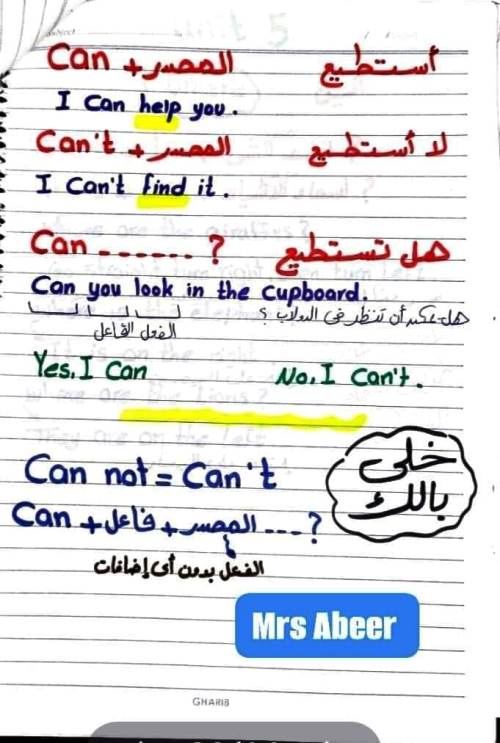 Can + المصدر أستطيع
I Can help you.
Can't + المصدر لا أستطيع
I Can't find it.
Can ------- ? هل تستطيع
Can you look in the cupboard.
هل يمكنك أن تنظر فى الدولاب ؟
الفعل الفاعل
Yes, I Can No, I Can't.
Can not = Can't
خلى
بالك
Can + فاعل + المصدر ---- ?
الفعل بدون أى إضافات
Mrs Abeer
GHARIB